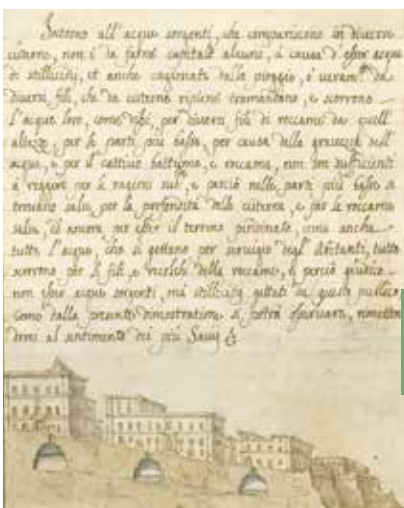 Intorno all' acque sorgenti, che compariscono in diverse
cisterne, non è da farne capitale alcuno, à causa d' esser acque
di stillicidij, et anche cagionate dalle pioggie, ò veram.te da
diversi fili, che da cisterne ripiene tramandano, e scorrono
l' acque loro, come dissi, per diversi fili di roccame da quell'
altezze, per le parti più basse, per causa della grauezza dell'
acqua, e per il cattivo bastume, e roccame, non son sufficienti
à reggere per le ragioni sud.e, e perciò nelle parti più basse si
trovano salse, per la profondità delle cisterne, e per le roccame
salse, et ancora per esser il terreno, come anche
tutte l' acque, che si gettano per servigio degl' Abitanti, tutte
scorrono per li fili, e della roccame, e perciò giudico
non esser acque sorgenti, mà stillicidij gettati da queste
come dalla presente dimostratione si potrà osservare, rimetten
domi al sentimento dei più Savij